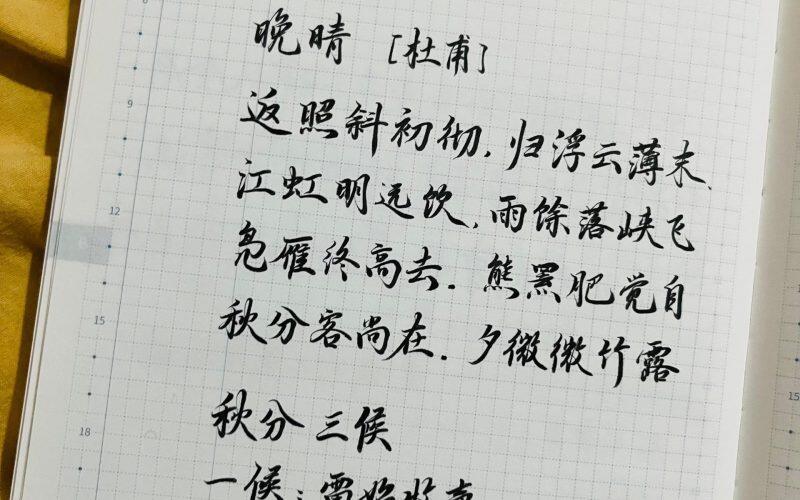 晚晴 [杜甫]
9
返照斜初彻, 归浮云薄未.
江虹明远饮, 雨馀落峡飞
12
凫雁终高去. 熊罴肥觉自
15
秋分客尚在. 夕微微竹露
15
秋分三候
18
一候: 雷始收声